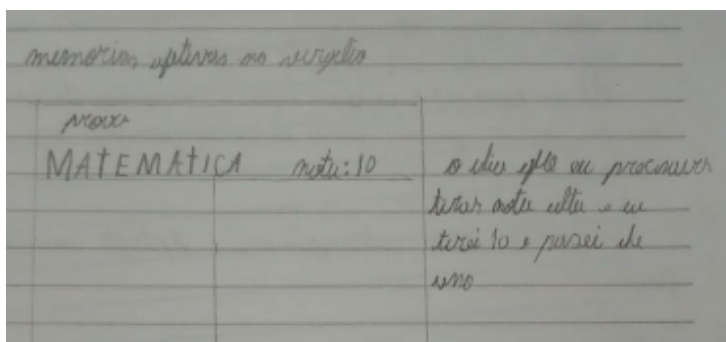 memorias afetivas na
prova
MATEMATICA nota: 10
o dia que eu precisava
tirar nota alta e eu
tirei 10 e pasei de
ano